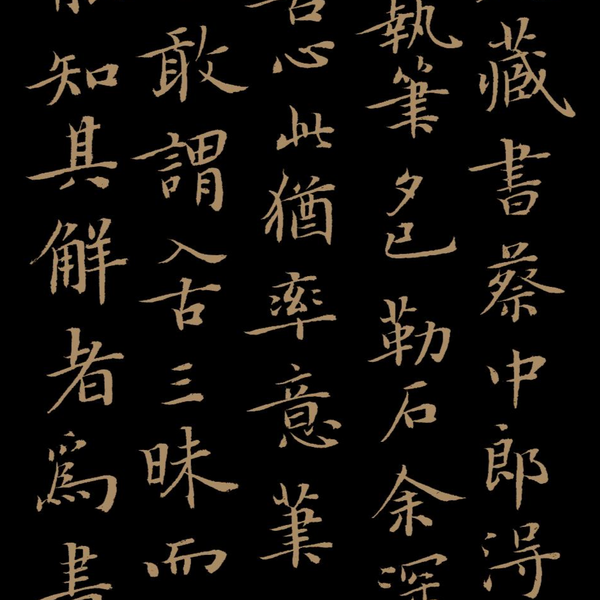 藏書蔡中郎得
執筆夕已勒石余深
心此猶率意筆
敢謂入古三昧而
知其解者爲書